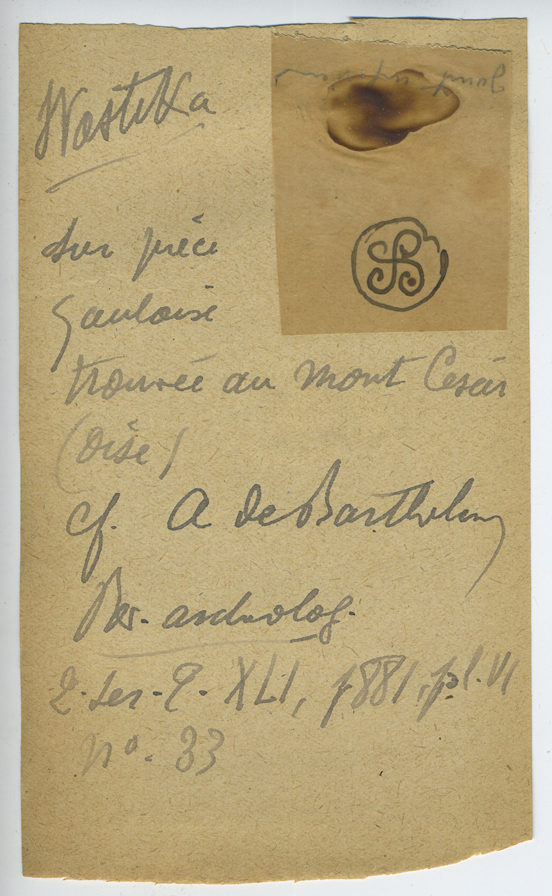 Wastika
sur pièce
gauloise
trouvée au Mont Cesar
(Oise)
cf. A de Barthelemy
Rev. archeolog.
2. ser. T. XLI, 1881, pl. VI
no. 33